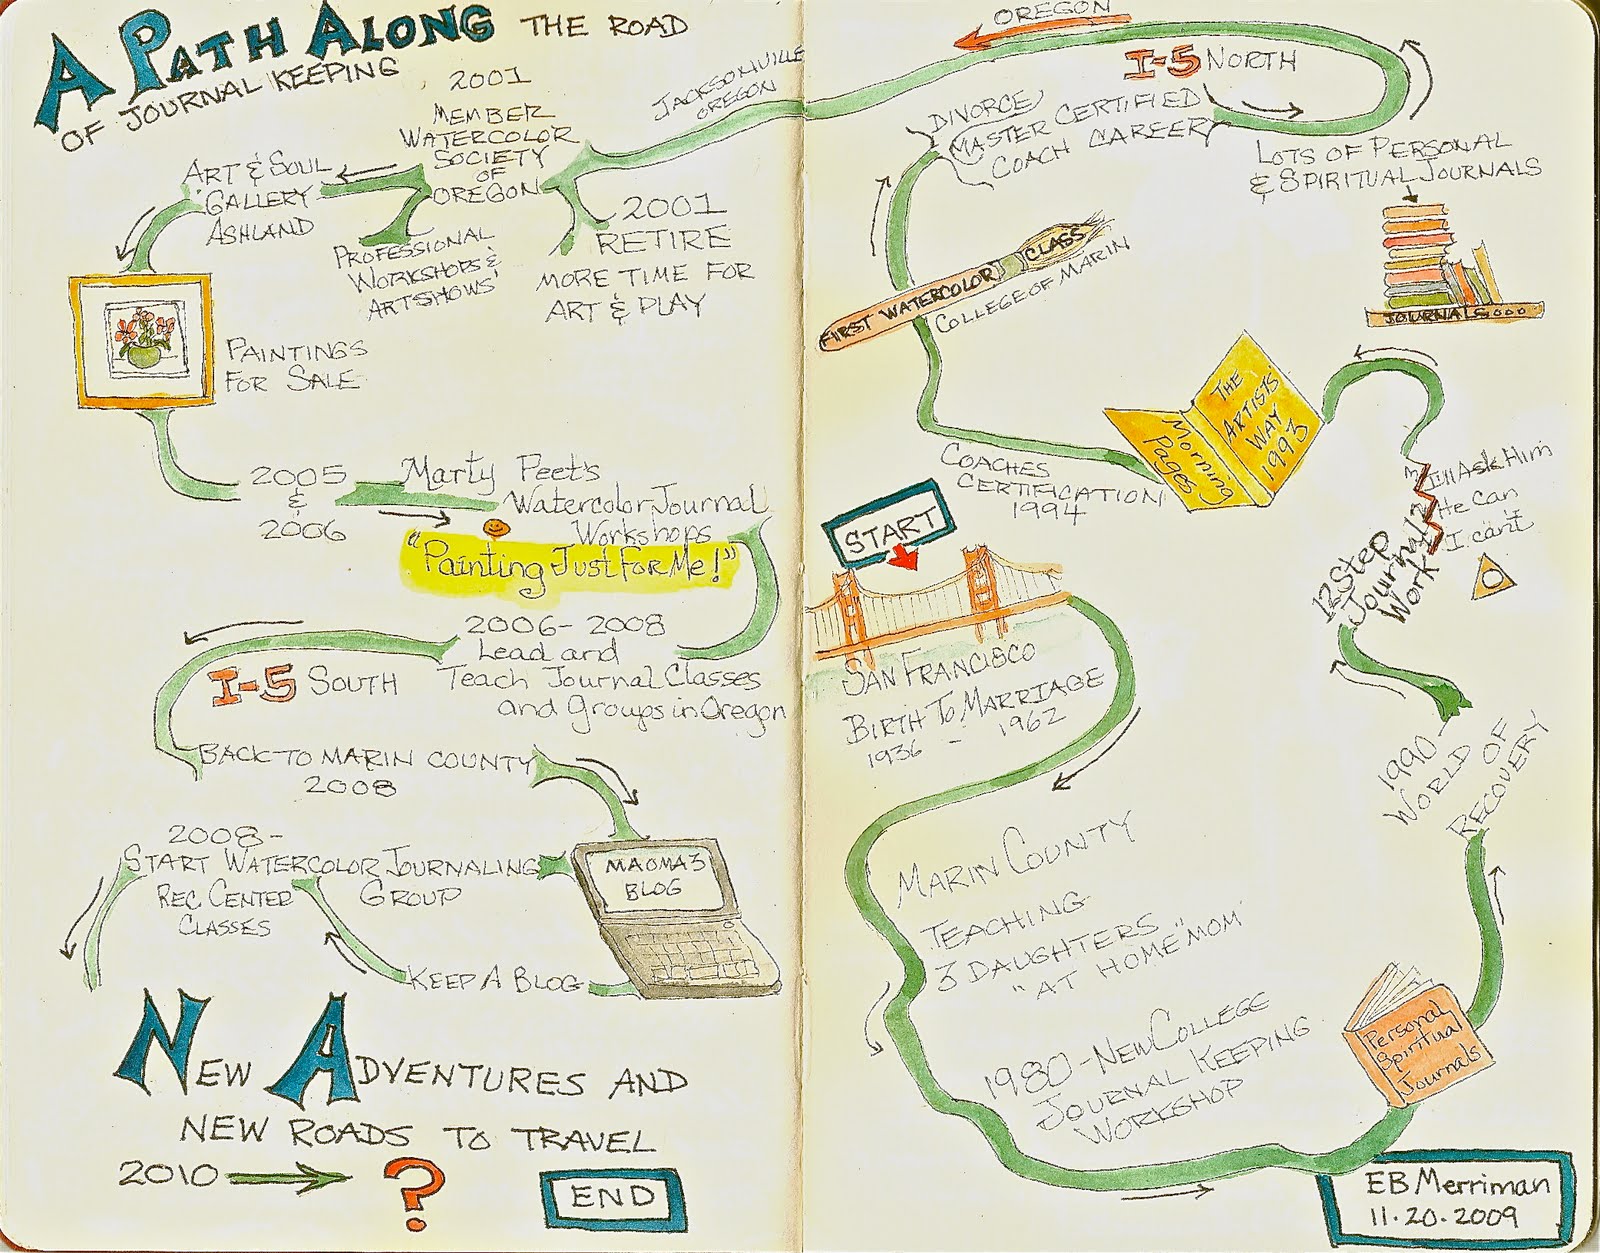 A PATH ALONG THE ROAD
OF JOURNAL KEEPING
START
SAN FRANCISCO
BIRTH TO MARRIAGE
1936 - 1962
MARIN COUNTY
TEACHING
3 DAUGHTERS
"AT HOME "MOM"
1980 - NEW COLLEGE
JOURNAL KEEPING
WORKSHOP
Personal
Spiritual
Journals
1990 -
WORLD OF
RECOVERY
12 Step
Journal
Work
I'll Ask Him
He Can
I can't
THE
ARTISTS'
WAY
1993
Morning
Pages
COACHES
CERTIFICATION
1994
FIRST WATERCOLOR CLASS
COLLEGE OF MARIN
DIVORCE
MASTER CERTIFIED
COACH CAREER
LOTS OF PERSONAL
& SPIRITUAL JOURNALS
JOURNALS...
I-5 NORTH
OREGON
JACKSONVILLE
OREGON
2001
RETIRE
MORE TIME FOR
ART & PLAY
2001
MEMBER
WATERCOLOR
SOCIETY
OF
OREGON
PROFESSIONAL
WORKSHOPS &
ARTSHOWS
ART & SOUL
GALLERY
ASHLAND
PAINTINGS
FOR SALE
2005
&
2006
Marty Peet's
Watercolor Journal
Workshops
"Painting Just For Me!"
2006 - 2008
Lead and
Teach Journal Classes
and Groups in Oregon
I-5 SOUTH
BACK TO MARIN COUNTY
2008
MAOMA3
BLOG
KEEP A BLOG
2008 -
START WATERCOLOR JOURNALING
GROUP
REC. CENTER
CLASSES
NEW ADVENTURES AND
NEW ROADS TO TRAVEL
2010 → ?
END
EB Merriman
11.20.2009